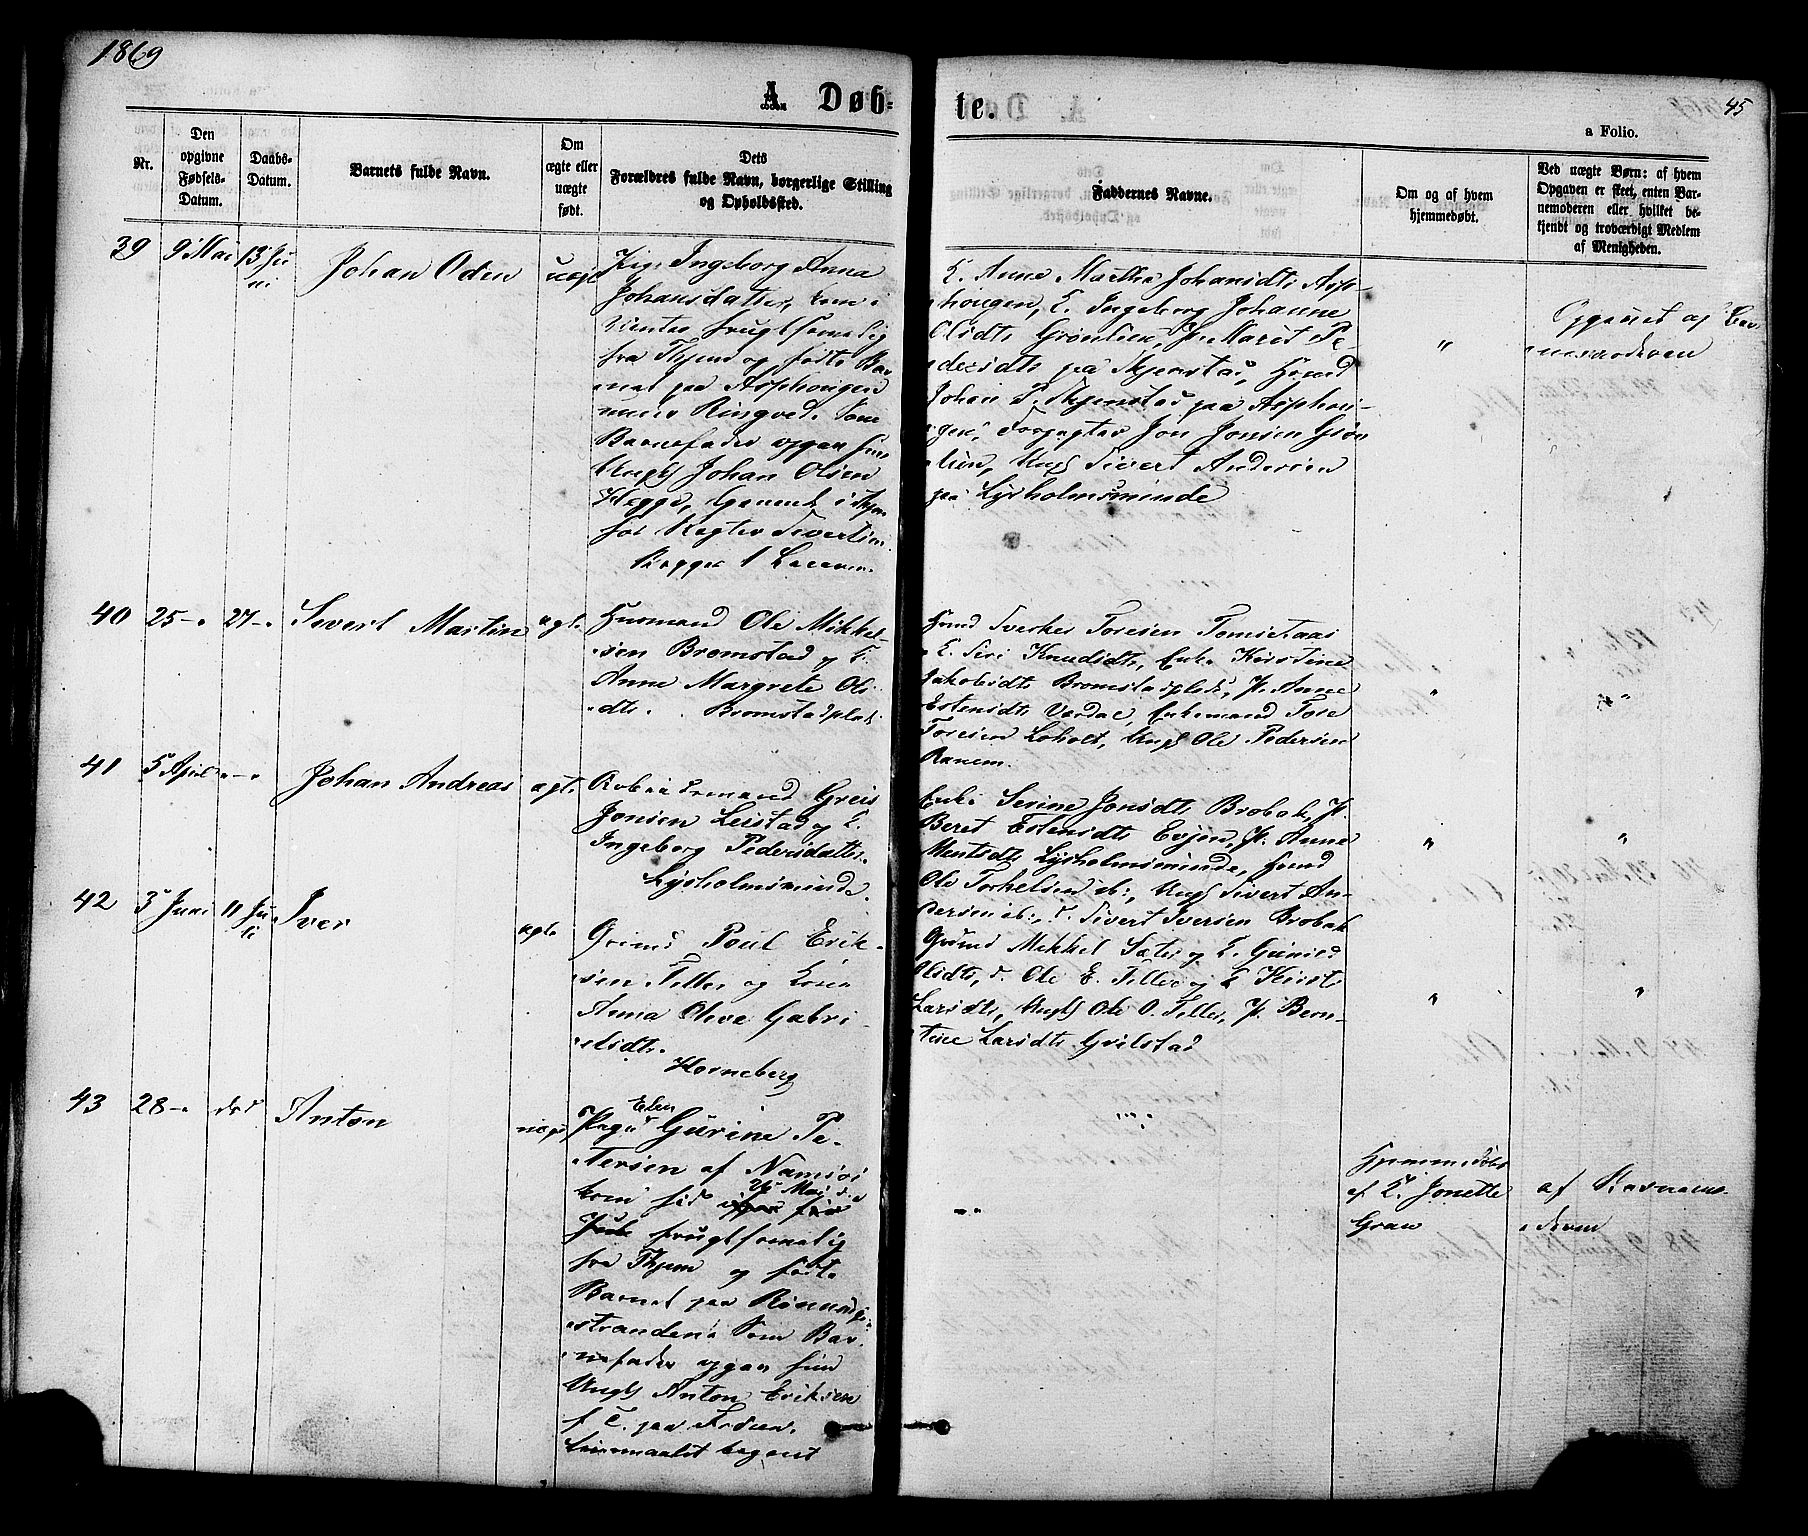 1869
45
A Døb-
te.
a Folio.
Nr.
Den
opgivne
Fødsels-
Datum.
Daabs-
Datum.
Barnets fulde Navn.
Om
ægte eller
uægte
født.
Dets
Forældres fulde Navn, borgerlige Stilling
og Opholdssted.
Faddernes Navne.
Om og af hvem
hjemmedøbt.
Ved uægte Børn: af hvem
Opgaven er skeet, enten Bar-
nemoderen eller hvilket be-
kjendt og troværdigt Medlem
af Menigheden.
39
9 Mai
13 Ju
ni
Johan Oden
uægt
Pige Ingeborg Anna
Johansdatter, kom i
Vinter frugtsomelig
fra Thjem og fødte Bar
net paa Asphougen
under Ringved. Som
Barnefader opgav hun
Ungk Johan Olsen
Hegge,
Sivertsen
E. Anne Martha Johansdt Asp-
hougen, E. Ingeborg Johanne
Olsdt Grønlien, P. Marit Pe-
dersdt paa Skjenstad, Hmd
Johan P. Skjenstad paa Asphou-
gen, Forpagter Jon Jonsen Grøn
lien, Ungk Sivert Andersen
paa Lysholmsminde
"
Opgivet af Bar
nemoderen
40
25 -"
27 -"
Sivert Martin
ægte
Husmand Ole Mikkel-
sen Bromstad og K.
Anne Margrete Ols
dtr. Bromstadplads
Hmd Sverke Toresen Tomsetaas
E. Siri Knudsdt, Enke Kirstine
Jakobsdt Bromstadplads, P. Anne
Estensdt Vordal, Enkemand Tore
Toresen Loholt, Ungk Ole Pedersen
Ranem.
"
"
41
5 April
" - "
Johan Andreas
ægte
Greis
Jonsen Leistad og K.
Ingeborg Pedersdatter.
Lysholmsminde.
Enke Serine Jonsdt Brobak, P.
Beret Estensdt Evjen, P. Anne
Mentsdt Lysholmsminde, Hmd
Ole Torkelsen ib:, Ungk Sivert An-
dersen ib:, d. Sivert Iversen Brobak
"
"
42
3 Juni
11 Ju
li
Iver
ægte
Grmd Poul Erik-
sen Tiller og Kone
Anna Oleva Gabri-
elsdtr.
Horneberg
Grmd Mikkel Sæter og K. Gunild
Olsdt, d. Ole E. Tiller og K. Kirsti
Larsdt, Ungk Ole O. Tiller, P. Bern-
tine Larsdt Gvilstad
"
"
43
28 -"
ds d
Anton
uægt
Elen
Pige Gurine Pe-
tersen af Namsos
kom hid
frugtsomelig
fra Thjem og fødte
Barnet paa
stranden. Som Bar
nefader opgav hun
Ungk Anton Eriksen
f T. paa
Leiermaalet begaaet
" "
" "
Hjemmedøbt
af K. Jonette
Graw
af Barnemo-
deren